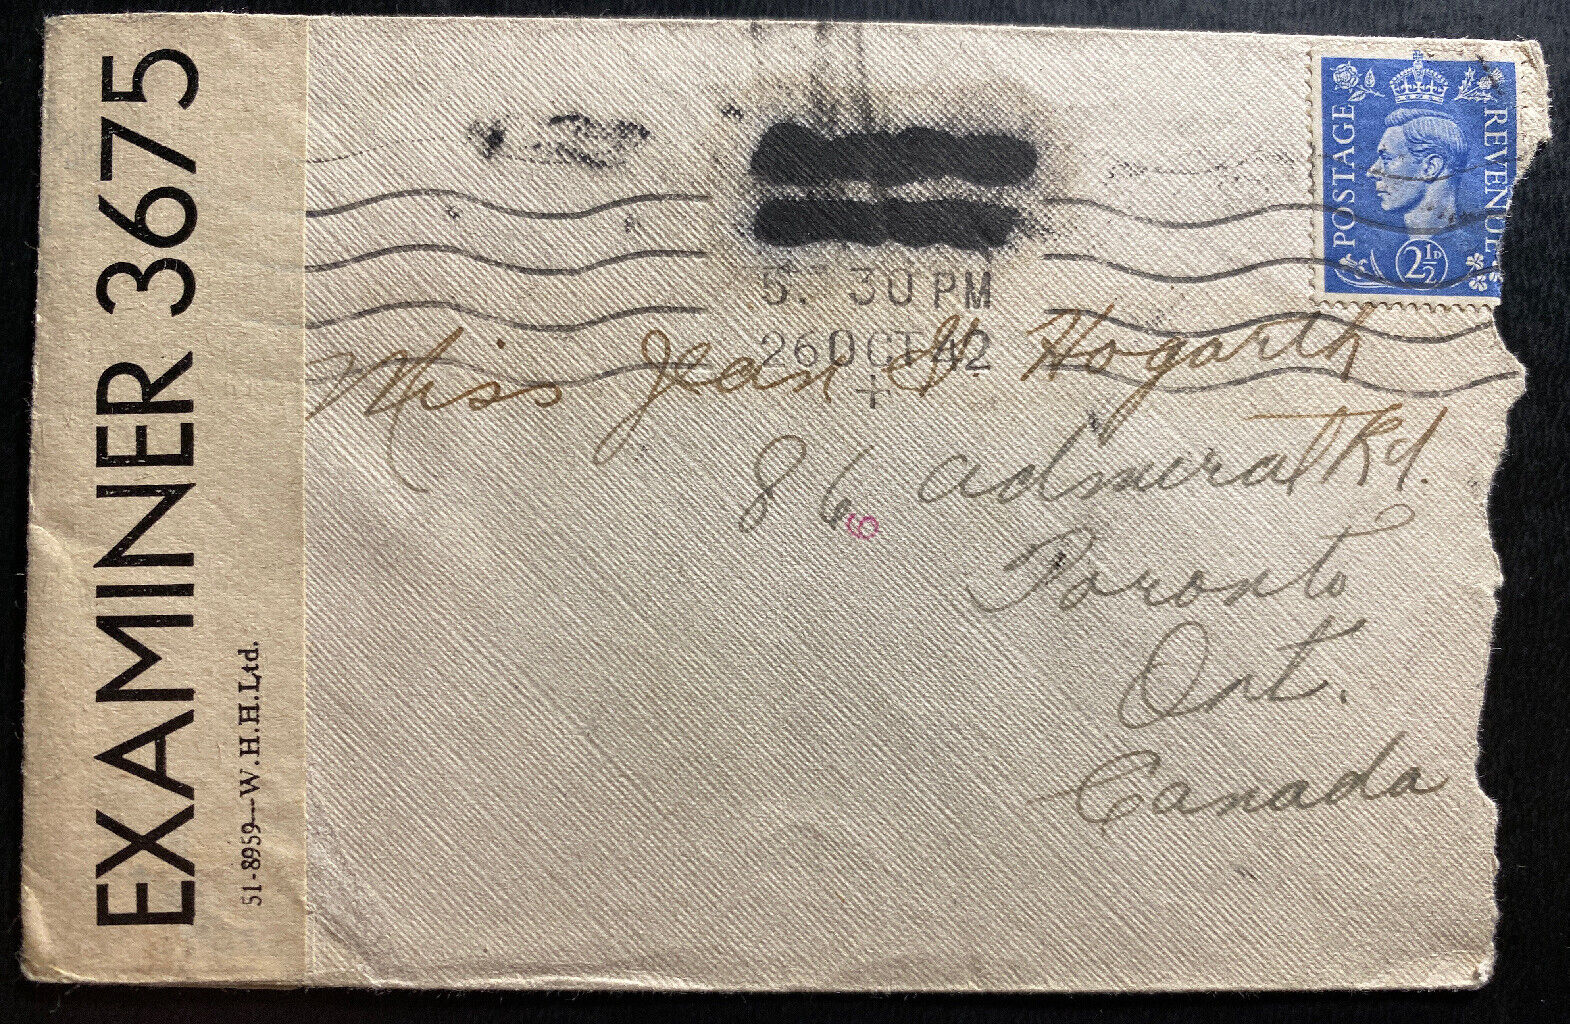 EXAMINER 3675
51-8959—W.H.H.Ltd.
POSTAGE
REVENUE
2½D
5. 30 PM
26 OCT 42
+
Miss Jean H Hogarth
86 Admiral Rd.
6
Toronto
Ont.
Canada